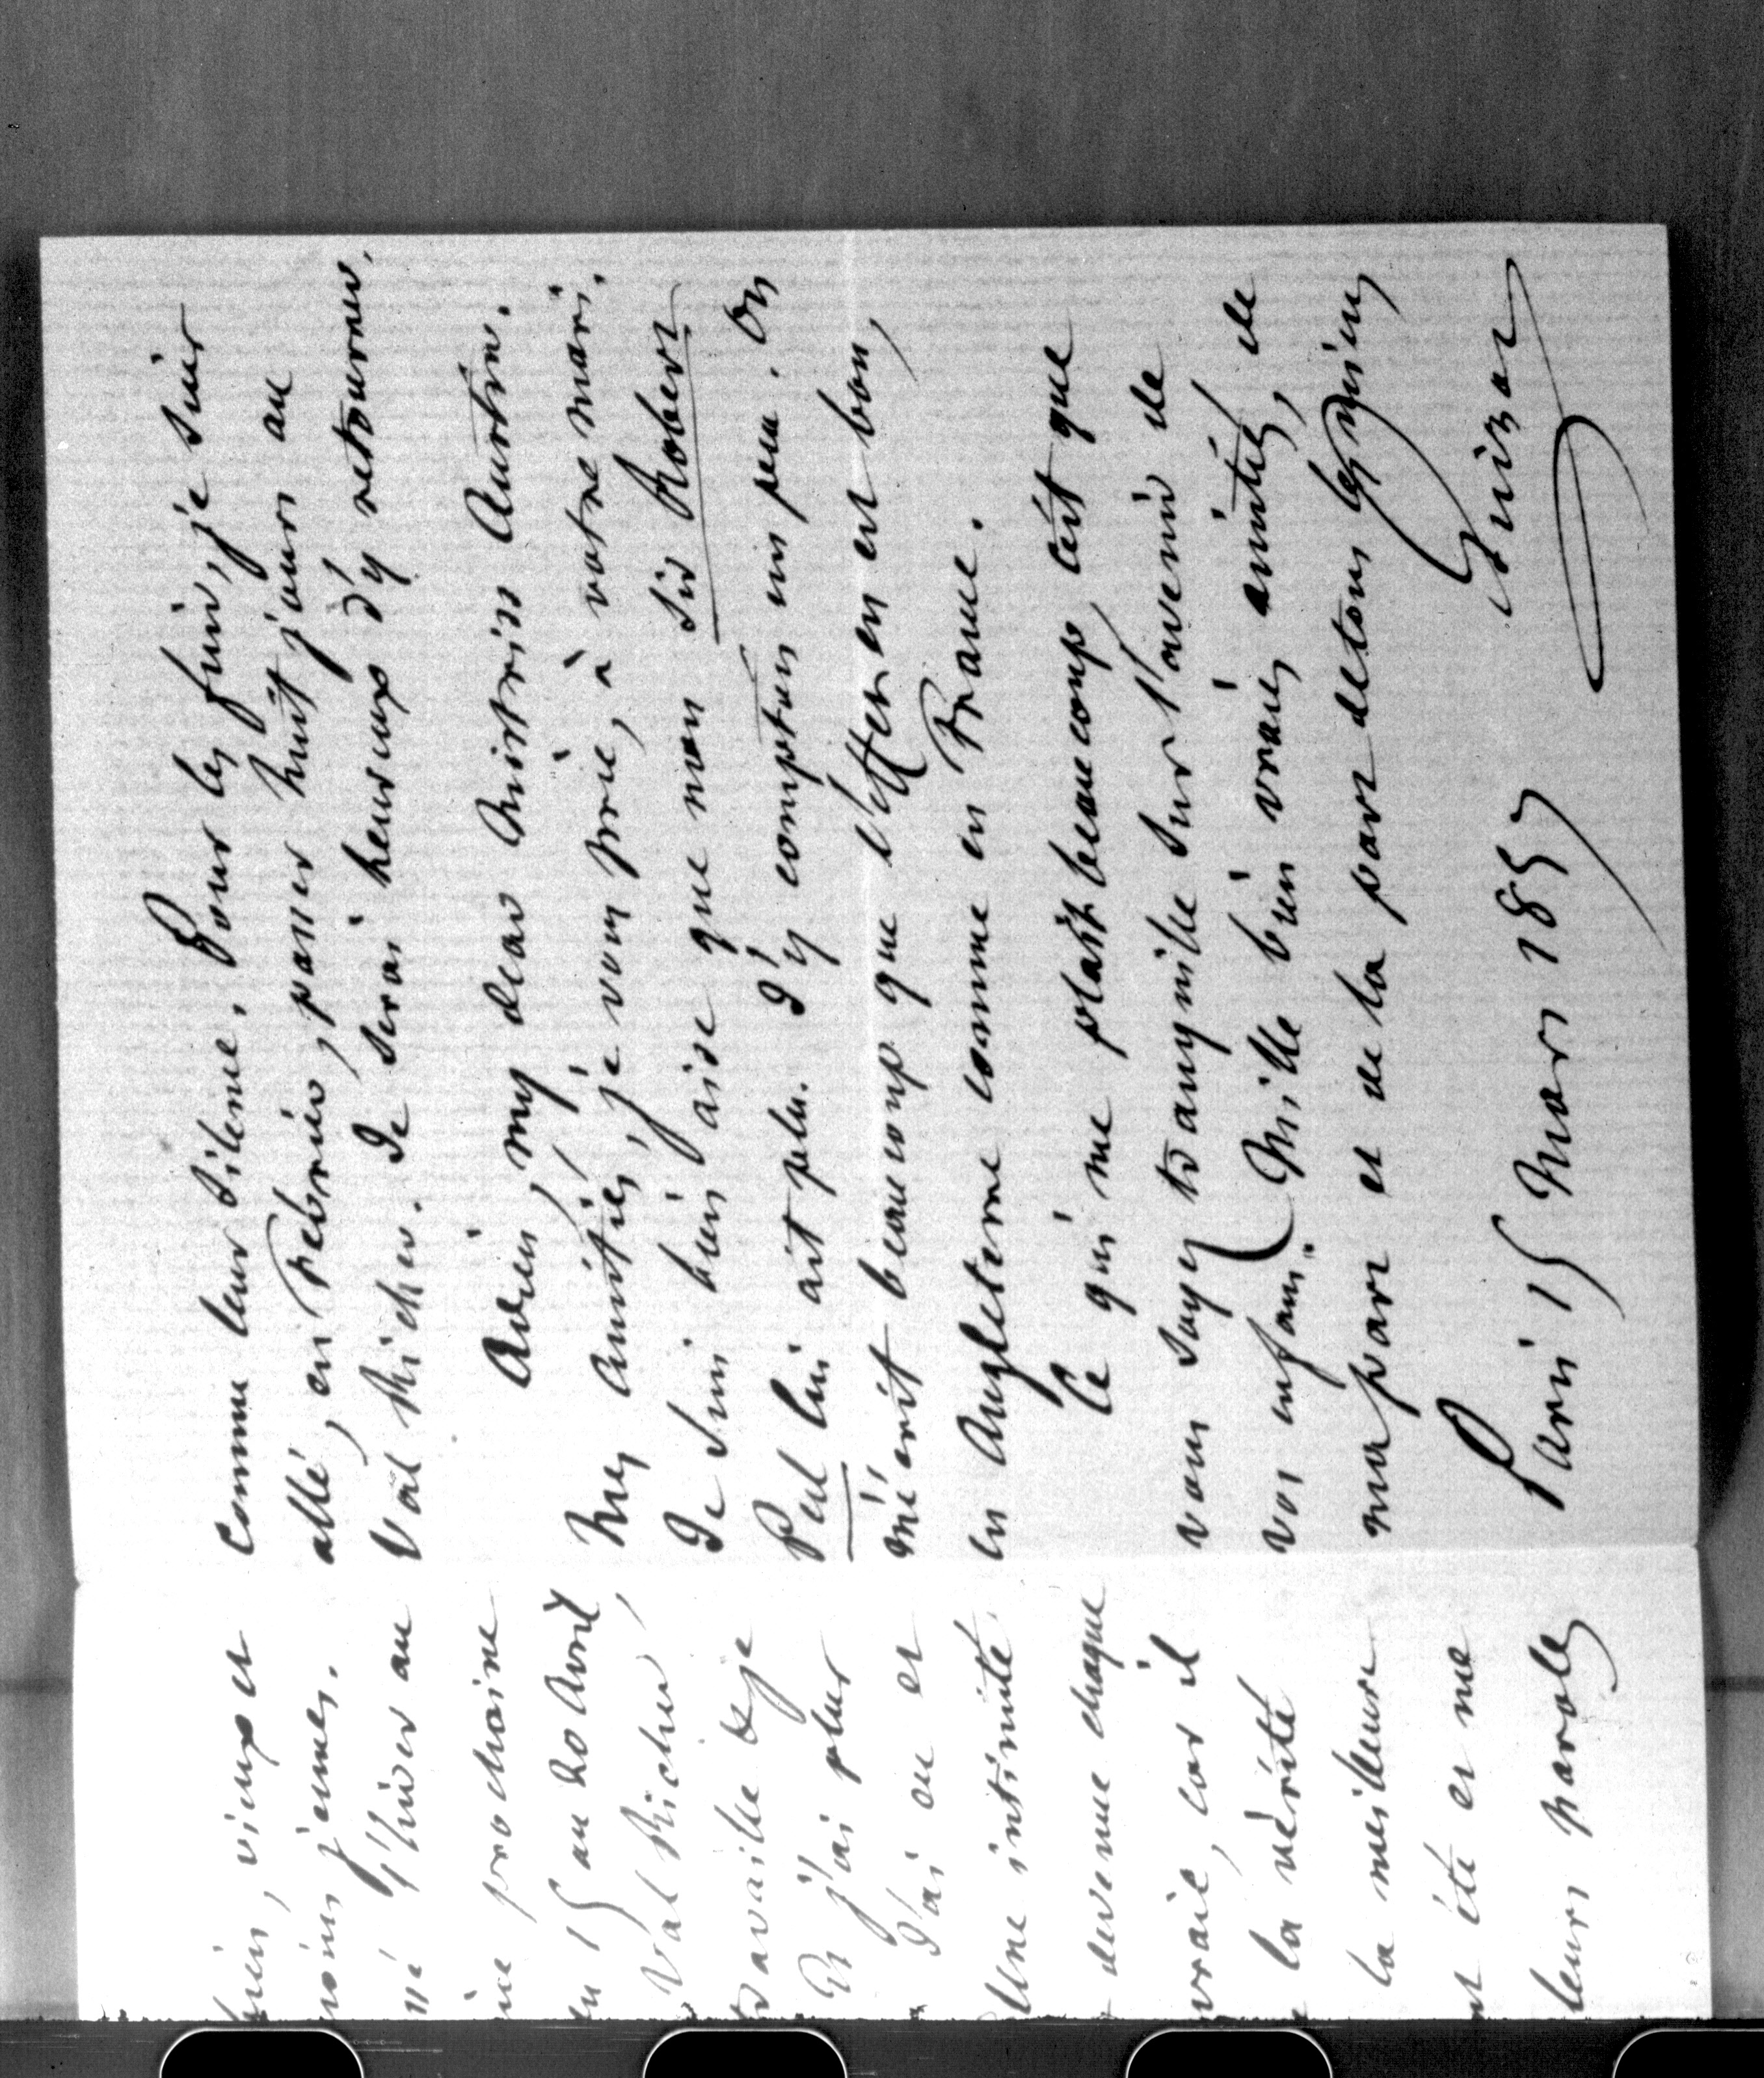 bien, vieux et
moins jeunes.
né l'hiver au
ine prochaine
du 15 au 20 Avril
Val Richer,
travaille & je
Et j'ai plus
J'ai eu et
Une intimité
devenue chaque
vraie, car il
la vérité
la meilleure
nt été et me
leurs paroles
Comme leur silence. Pour les fuir, je suis
allé, en Février, passer huit jours au
Val Richer. Je serai heureux d'y retourner.
Adieu, my dear Mistriss Austin.
Mes amitiés, je vous prie, à votre mari.
Je suis bien aise que mon Sir Robert
Peel lui ait plu. J'y comptois un peu. On
m'écrit beaucoup que l'effet en est bon,
en Angleterre comme en France.
Ce qui me plaît beaucoup, c'est que
vous soyez tranquille sur l'avenir de
vos enfans. Mille bien vraies amitiés, de
ma part et de la part de tous les miens
Guizot
Paris 15 Mars 1857